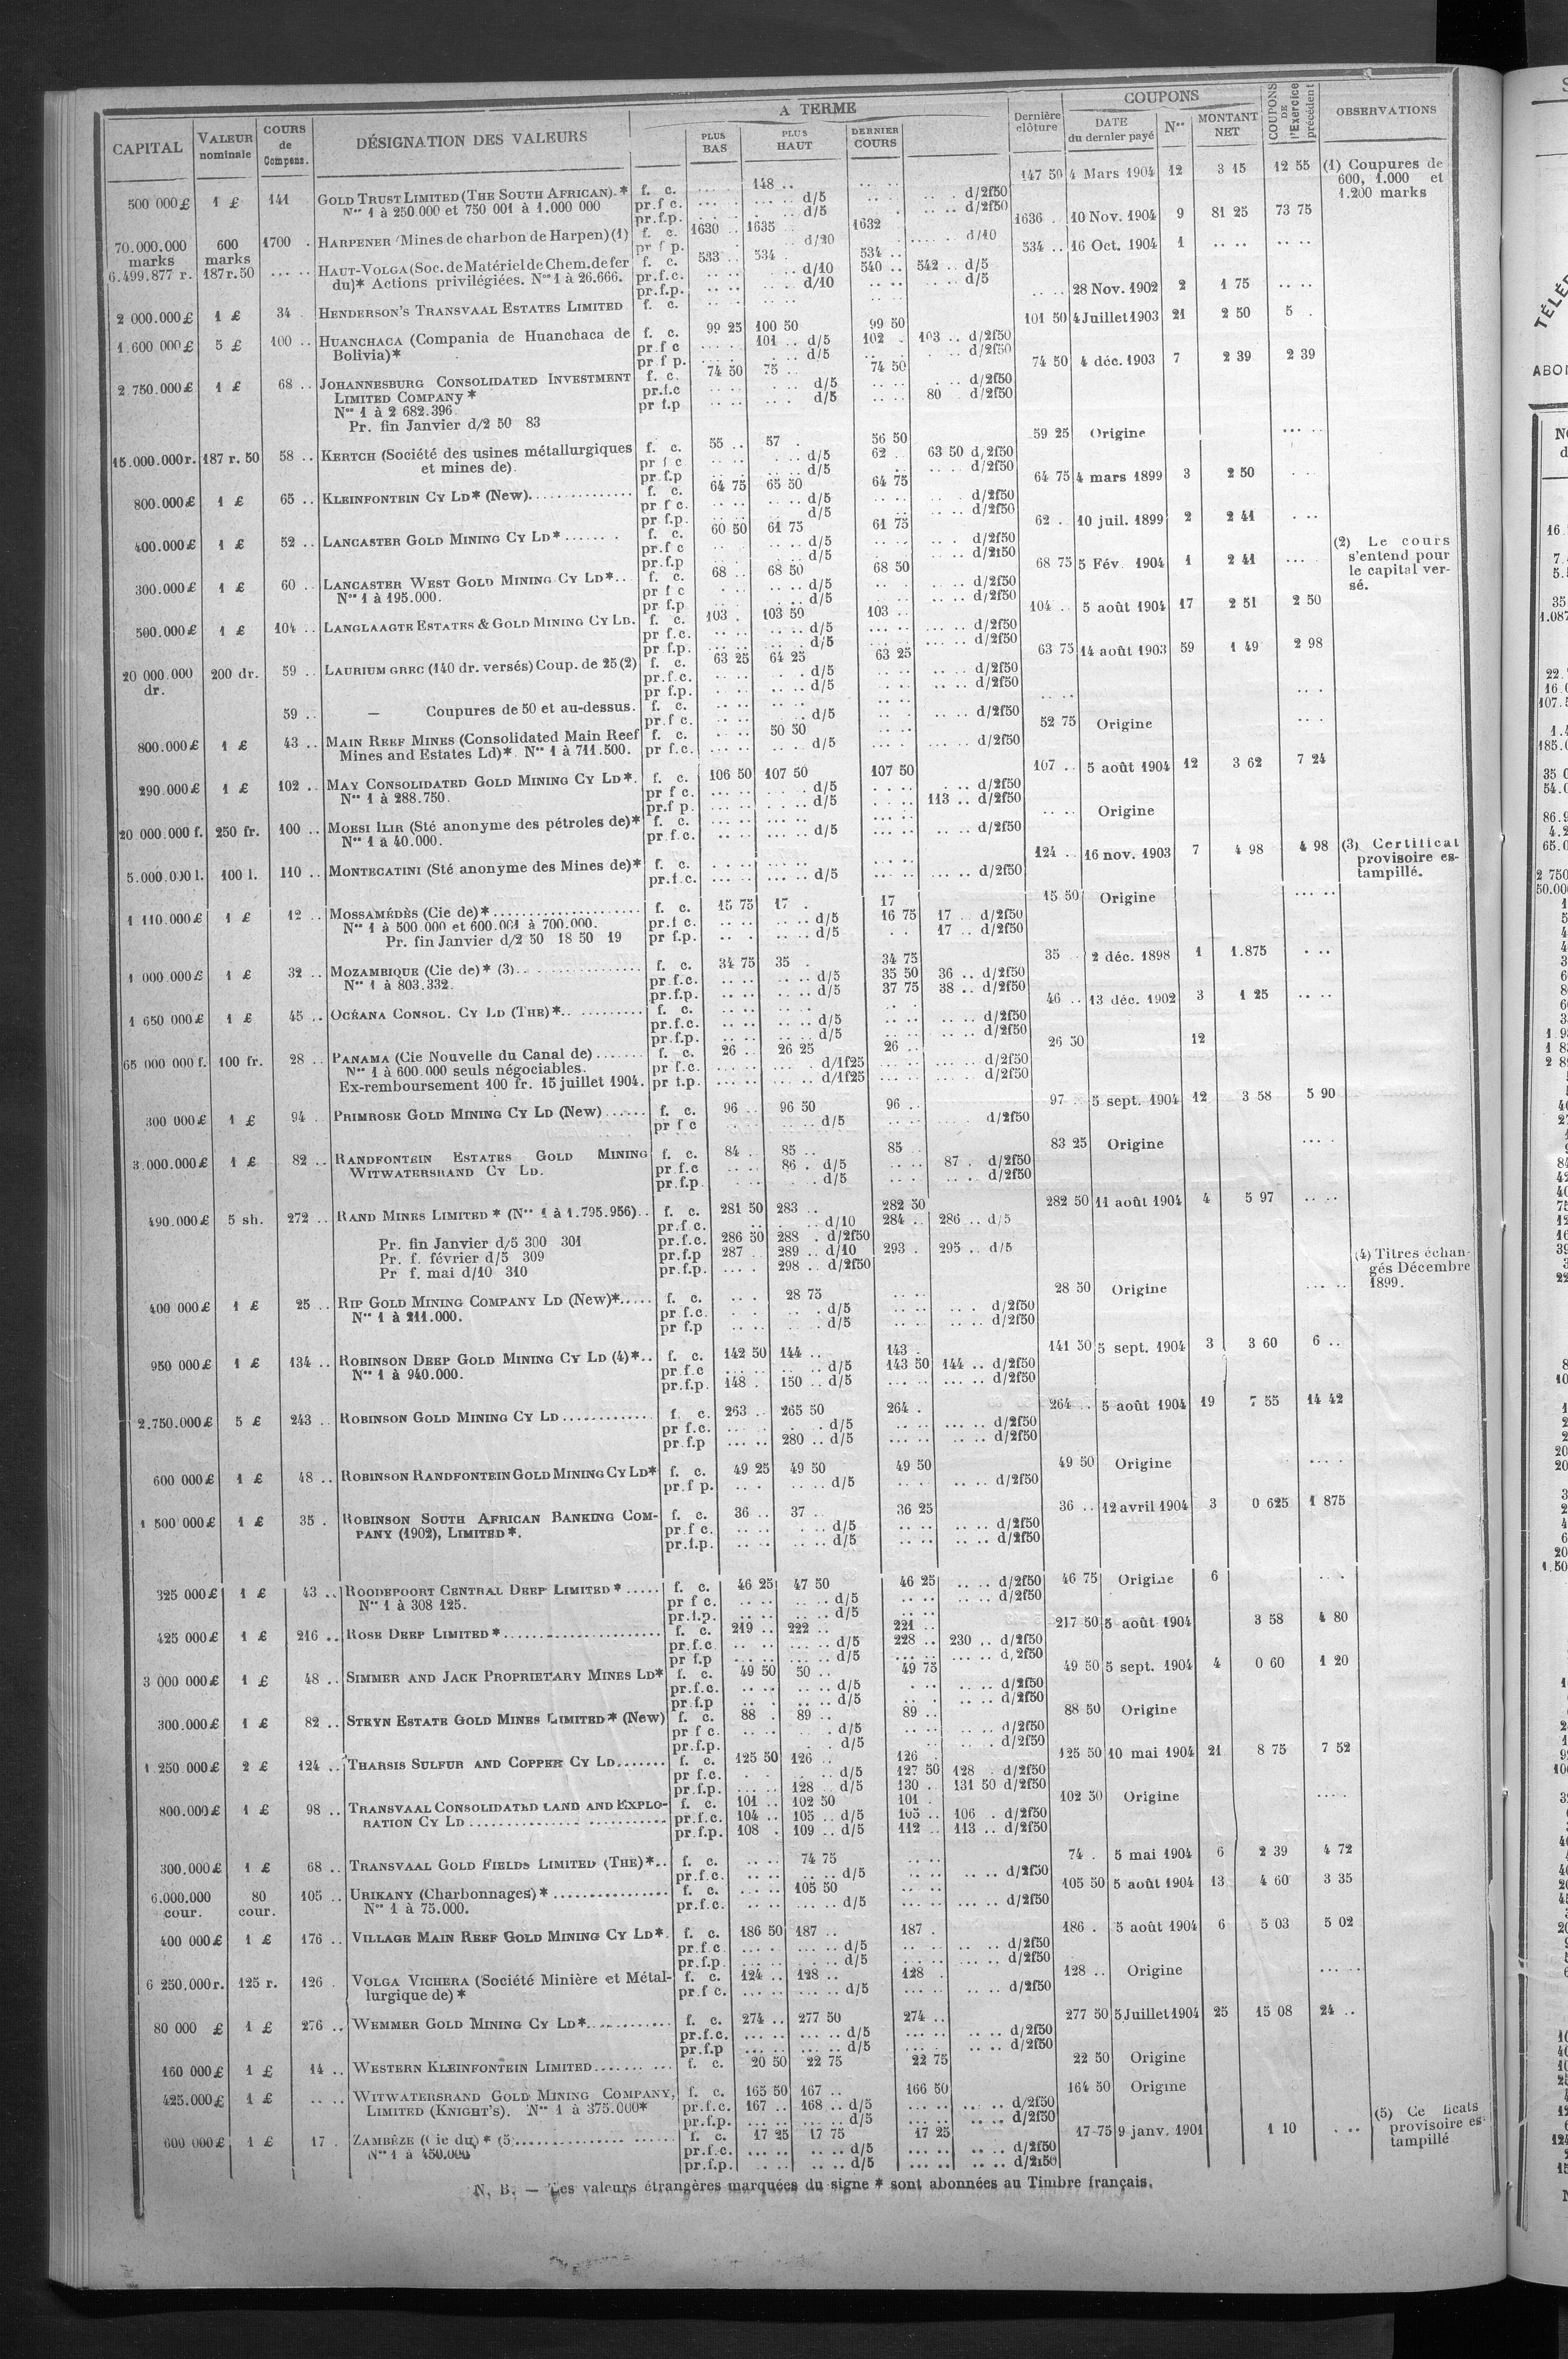 A TERME
COUPONS
CAPITAL | VALEUR nominale | COURS de Compens. | DÉSIGNATION DES VALEURS | PLUS BAS | PLUS HAUT | DERNIER COURS | Dernière clôture | DATE du dernier payé | Nos | MONTANT NET | COUPONS DE l'Exercice précédent | OBSERVATIONS
500 000 £ | 1 £ | 141 | GOLD TRUST LIMITED (THE SOUTH AFRICAN).* | f. c. | 148 .. | 147 50 | 4 Mars 1904 | 12 | 3 15 | 12 55 | (1) Coupures de 600, 1.000 et 1.200 marks
Nos 1 à 250.000 et 750 001 à 1.000 000 | pr.f c. | d/5 | d/2f50
pr.f.p. | d/5 | d/2f50
70.000.000 marks | 600 marks | 1700 . | HARPENER (Mines de charbon de Harpen) (1) | f. c. | 1630 .. | 1635 .. | 1632 | 1636 . | 10 Nov. 1904 | 9 | 81 25 | 73 75
pr f p. | d/20 | d/10
6.499.877 r. | 187r.50 | .... | HAUT-VOLGA (Soc. de Matériel de Chem. de fer | f. c. | 533 .. | 534 . | 534 .. | 534 .. | 16 Oct. 1904 | 1 | .. .. | .. ..
du)* Actions privilégiées. Nos 1 à 26.666. | pr.f.c. | d/10 | 540 .. | 542 .. d/5
pr.f.p. | d/10 | d/5
2 000.000 £ | 1 £ | 34 . | HENDERSON'S TRANSVAAL ESTATES LIMITED | f. c. | .. .. | 28 Nov. 1902 | 2 | 1 75 | .. ..
1.600 000 £ | 5 £ | 100 .. | HUANCHACA (Compania de Huanchaca de | f. c. | 99 25 | 100 50 | 99 50 | 101 50 | 4 Juillet 1903 | 21 | 2 50 | 5 .
Bolivia)* | pr.f c | 101 .. d/5 | 102 . | 103 .. d/2f50
pr.f p. | d/5 | d/2f50
2 750.000 £ | 1 £ | 68 .. | JOHANNESBURG CONSOLIDATED INVESTMENT | f. c. | 74 50 | 75 .. | 74 50 | 74 50 | 4 déc. 1903 | 7 | 2 39 | 2 39
LIMITED COMPANY * | pr.f.c | d/5 | d/2f50
Nos 1 à 2 682.396 | pr f.p | d/5 | 80 d/2f50
Pr. fin Janvier d/2 50 83
15.000.000 r. | 187 r. 50 | 58 .. | KERTCH (Société des usines métallurgiques | f. c. | 55 .. | 57 . | 56 50 | 59 25 | Origine | .. ..
et mines de). | pr f c | d/5 | 62 . | 63 50 d/2f50
pr.f.p | d/5 | d/2f50
800.000 £ | 1 £ | 65 .. | KLEINFONTEIN CY LD* (New). | f. c. | 64 75 | 65 50 | 64 75 | 64 75 | 4 mars 1899 | 3 | 2 50
pr f c. | d/5 | d/2f50
pr f.p. | d/5 | d/2f50
400.000 £ | 1 £ | 52 .. | LANCASTER GOLD MINING CY LD* | f. c. | 60 50 | 61 75 | 61 75 | 62 . | 10 juil. 1899 | 2 | 2 41 | (2) Le cours s'entend pour le capital versé.
pr.f c | d/5 | d/2f50
pr.f.p | d/5 | d/2f50
300.000 £ | 1 £ | 60 .. | LANCASTER WEST GOLD MINING CY LD*.. | f. c. | 68 .. | 68 50 | 68 50 | 68 75 | 5 Fév. 1904 | 1 | 2 41 | ....
Nos 1 à 195.000. | pr f c | d/5 | d/2f50
pr f.p | d/5 | d/2f50
500.000 £ | 1 £ | 104 .. | LANGLAAGTE ESTATES & GOLD MINING CY LD. | f. c. | 103 . | 103 50 | 103 .. | 104 .. | 5 août 1904 | 17 | 2 51 | 2 50
pr f.c. | d/5 | d/2f50
pr f.p. | d/5 | d/2f50
20 000.000 dr. | 200 dr. | 59 .. | LAURIUM GREC (140 dr. versés) Coup. de 25 (2) | f. c. | 63 25 | 64 25 | 63 25 | 63 75 | 14 août 1903 | 59 | 1 49 | 2 98
pr.f.c. | d/5 | d/2f50
pr f.p. | d/5 | d/2f50
59 .. | — Coupures de 50 et au-dessus. | f. c. | .. ..
pr.f c. | d/5 | d/2f50
800.000 £ | 1 £ | 43 .. | MAIN REEF MINES (Consolidated Main Reef | f. c. | 50 50 | 52 75 | Origine
Mines and Estates Ld)* Nos 1 à 711.500. | pr f.c. | d/5 | d/2f50
290.000 £ | 1 £ | 102 .. | MAY CONSOLIDATED GOLD MINING CY LD*. | f. c. | 106 50 | 107 50 | 107 50 | 107 .. | 5 août 1904 | 12 | 3 62 | 7 24
Nos 1 à 288.750. | pr f c. | d/5 | d/2f50
pr.f p. | d/5 | 113 .. d/2f50
20 000.000 f. | 250 fr. | 100 .. | MOESI ILIR (Sté anonyme des pétroles de)* | f. c. | .. .. | Origine
Nos 1 à 40.000. | pr.f.c. | d/5 | d/2f50
5.000.000 l. | 100 l. | 110 .. | MONTECATINI (Sté anonyme des Mines de)* | f. c. | 124 .. | 16 nov. 1903 | 7 | 4 98 | 4 98 | (3) Certificat provisoire estampillé.
pr.f.c. | d/5 | d/2f50
1 110.000 £ | 1 £ | 12 .. | MOSSAMÉDÈS (Cie de)* | f. c. | 15 75 | 17 . | 17 | 15 50 | Origine | .. ..
Nos 1 à 500.000 et 600.001 à 700.000. | pr.f c | d/5 | 16 75 | 17 .. d/2f50
Pr. fin Janvier d/2 50 18 50 19 | pr f.p. | d/5 | 17 .. d/2f50
1 000 000 £ | 1 £ | 32 .. | MOZAMBIQUE (Cie de)* (3). | f. c. | 34 75 | 35 . | 34 75 | 35 .. | 2 déc. 1898 | 1 | 1.875
Nos 1 à 803.332. | pr.f.c. | d/5 | 35 50 | 36 .. d/2f50
pr.f.p. | d/5 | 37 75 | 38 .. d/2f50
1 650 000 £ | 1 £ | 45 .. | OCÉANA CONSOL. CY LD (THE)* | f. c. | 46 .. | 13 déc. 1902 | 3 | 1 25 | .. ..
pr.f.c. | d/5 | d/2f50
pr.f.p. | d/5 | d/2f50
65 000 000 f. | 100 fr. | 28 .. | PANAMA (Cie Nouvelle du Canal de) | f. c. | 26 .. | 26 25 | 26 .. | 26 50 | 12
Nos 1 à 600.000 seuls négociables. | pr f.c. | d/1f25 | d/2f50
Ex-remboursement 100 fr. 15 juillet 1904. | pr f.p. | d/1f25 | d/2f50
300 000 £ | 1 £ | 94 .. | PRIMROSE GOLD MINING CY LD (New) | f. c. | 96 .. | 96 50 | 96 .. | 97 . | 5 sept. 1904 | 12 | 3 58 | 5 90
pr f c | d/5 | d/2f50
3.000.000 £ | 1 £ | 82 .. | RANDFONTEIN ESTATES GOLD MINING | f. c. | 84 . | 85 .. | 85 .. | 83 25 | Origine
WITWATERSRAND CY LD. | pr f.c | 86 . d/5 | 87 . d/2f50
pr.f.p. | d/5 | d/2f50
490.000 £ | 5 sh. | 272 .. | RAND MINES LIMITED * (Nos 1 à 1.795.956).. | f. c. | 281 50 | 283 .. | 282 50 | 282 50 | 11 août 1904 | 4 | 5 97 | .. ..
pr.f.c. | d/10 | 284 .. | 286 .. d/5
Pr. fin Janvier d/5 300 301 | pr.f.c. | 286 50 | 288 . d/2f50
Pr. f. février d/5 309 | pr.f.p | 287 . | 289 .. d/10 | 293 . | 295 .. d/5
Pr f. mai d/10 310 | pr.f.p. | 298 .. d/2f50 | (4) Titres échangés Décembre 1899.
400 000 £ | 1 £ | 25 .. | RIP GOLD MINING COMPANY LD (New)* | f. c. | 28 75 | 28 50 | Origine | .. ..
Nos 1 à 211.000. | pr f.c. | d/5 | d/2f50
pr f.p | d/5 | d/2f50
950 000 £ | 1 £ | 134 .. | ROBINSON DEEP GOLD MINING CY LD (4)*.. | f. c. | 142 50 | 144 .. | 143 . | 141 50 | 5 sept. 1904 | 3 | 3 60 | 6 ..
Nos 1 à 940.000. | pr f c | d/5 | 143 50 | 144 .. d/2f50
pr.f.p. | 148 . | 150 .. d/5 | d/2f50
2.750.000 £ | 5 £ | 243 .. | ROBINSON GOLD MINING CY LD | f. c. | 263 .. | 265 50 | 264 . | 264 .. | 5 août 1904 | 19 | 7 55 | 14 42
pr f.c. | d/5 | d/2f50
pr.f.p | 280 .. d/5 | d/2f50
600 000 £ | 1 £ | 48 .. | ROBINSON RANDFONTEIN GOLD MINING CY LD* | f. c. | 49 25 | 49 50 | 49 50 | 49 50 | Origine
pr.f p. | d/5 | d/2f50
1 500 000 £ | 1 £ | 35 . | ROBINSON SOUTH AFRICAN BANKING COM- | f. c. | 36 .. | 37 .. | 36 25 | 36 .. | 12 avril 1904 | 3 | 0 625 | 1 875
PANY (1902), LIMITED*. | pr f c. | d/5 | d/2f50
pr.f.p. | d/5 | d/2f50
325 000 £ | 1 £ | 43 .. | ROODEPOORT CENTRAL DEEP LIMITED* | f. c. | 46 25 | 47 50 | 46 25 | d/2f50 | 46 75 | Origine | 6
Nos 1 à 308 125. | pr f c. | d/5 | d/2f50
pr.f.p. | d/5
425 000 £ | 1 £ | 216 .. | ROSE DEEP LIMITED* | f. c. | 219 .. | 222 .. | 221 .. | 217 50 | 5 août 1904 | 3 58 | 4 80
pr.f.c | d/5 | 228 .. | 230 .. d/2f50
pr f.p | d/5 | d/2f50
3 000 000 £ | 1 £ | 48 .. | SIMMER AND JACK PROPRIETARY MINES LD* | f. c. | 49 50 | 50 .. | 49 75 | 49 50 | 5 sept. 1904 | 4 | 0 60 | 1 20
pr.f.c. | d/5 | d/2f50
pr f.p | d/5 | d/2f50
300.000 £ | 1 £ | 82 .. | STEYN ESTATE GOLD MINES LIMITED* (New) | f. c. | 88 . | 89 .. | 89 .. | 88 50 | Origine
pr f c. | d/5 | d/2f50
pr.f.p. | d/5 | d/2f50
1 250 000 £ | 2 £ | 124 .. | THARSIS SULFUR AND COPPER CY LD | f. c. | 125 50 | 126 .. | 126 . | 125 50 | 10 mai 1904 | 21 | 8 75 | 7 52
pr f.c. | d/5 | 127 50 | 128 . d/2f50
pr.f.p. | 128 .. d/5 | 130 . | 131 50 d/2f50
800.000 £ | 1 £ | 98 .. | TRANSVAAL CONSOLIDATED LAND AND EXPLO- | f. c. | 101 .. | 102 50 | 101 . | 102 50 | Origine
RATION CY LD | pr.f.c. | 104 .. | 105 .. d/5 | 105 .. | 106 . d/2f50
pr.f.p. | 108 . | 109 .. d/5 | 112 .. | 113 .. d/2f50
300.000 £ | 1 £ | 68 .. | TRANSVAAL GOLD FIELDS LIMITED (THE)*.. | f. c. | 74 75 | 74 . | 5 mai 1904 | 6 | 2 39 | 4 72
pr.f.c. | d/5 | d/2f50
6.000.000 cour. | 80 cour. | 105 .. | URIKANY (Charbonnages)* | f. c. | 105 50 | 105 50 | 5 août 1904 | 13 | 4 60 | 3 35
Nos 1 à 75.000. | pr.f.c. | d/5 | d/2f50
400 000 £ | 1 £ | 176 .. | VILLAGE MAIN REEF GOLD MINING CY LD*. | f. c. | 186 50 | 187 .. | 187 . | 186 . | 5 août 1904 | 6 | 5 03 | 5 02
pr.f.c | d/5 | d/2f50
pr.f.p. | d/5 | d/2f50
6 250.000 r. | 125 r. | 126 . | VOLGA VICHERA (Société Minière et Métal- | f. c. | 124 .. | 128 .. | 128 . | 128 .. | Origine
lurgique de)* | pr.f c. | d/5 | d/2f50
80 000 £ | 1 £ | 276 .. | WEMMER GOLD MINING CY LD* | f. c. | 274 .. | 277 50 | 274 .. | 277 50 | 5 Juillet 1904 | 25 | 15 08 | 24 ..
pr.f.c. | d/5 | d/2f50
pr.f.p | d/5 | d/2f50
160 000 £ | 1 £ | 14 .. | WESTERN KLEINFONTEIN LIMITED | f. c. | 20 50 | 22 75 | 22 75 | 22 50 | Origine
425.000 £ | 1 £ | .. .. | WITWATERSRAND GOLD MINING COMPANY, | f. c. | 165 50 | 167 .. | 166 50 | 164 50 | Origine
LIMITED (KNIGHT'S). Nos 1 à 375.000* | pr.f.c. | 167 .. | 168 .. d/5 | d/2f50
pr.f.p. | d/5 | d/2f50
600 000 £ | 1 £ | 17 . | ZAMBÈZE (Cie du)* (5) | f. c. | 17 25 | 17 75 | 17 25 | 17 75 | 9 janv. 1901 | 1 10 | (5) provisoire estampillé
Nos 1 à 450.000 | pr.f.c. | d/5 | d/2f50
pr.f.p. | d/5 | d/2f50
N. B. — Les valeurs étrangères marquées du signe * sont abonnées au Timbre français.